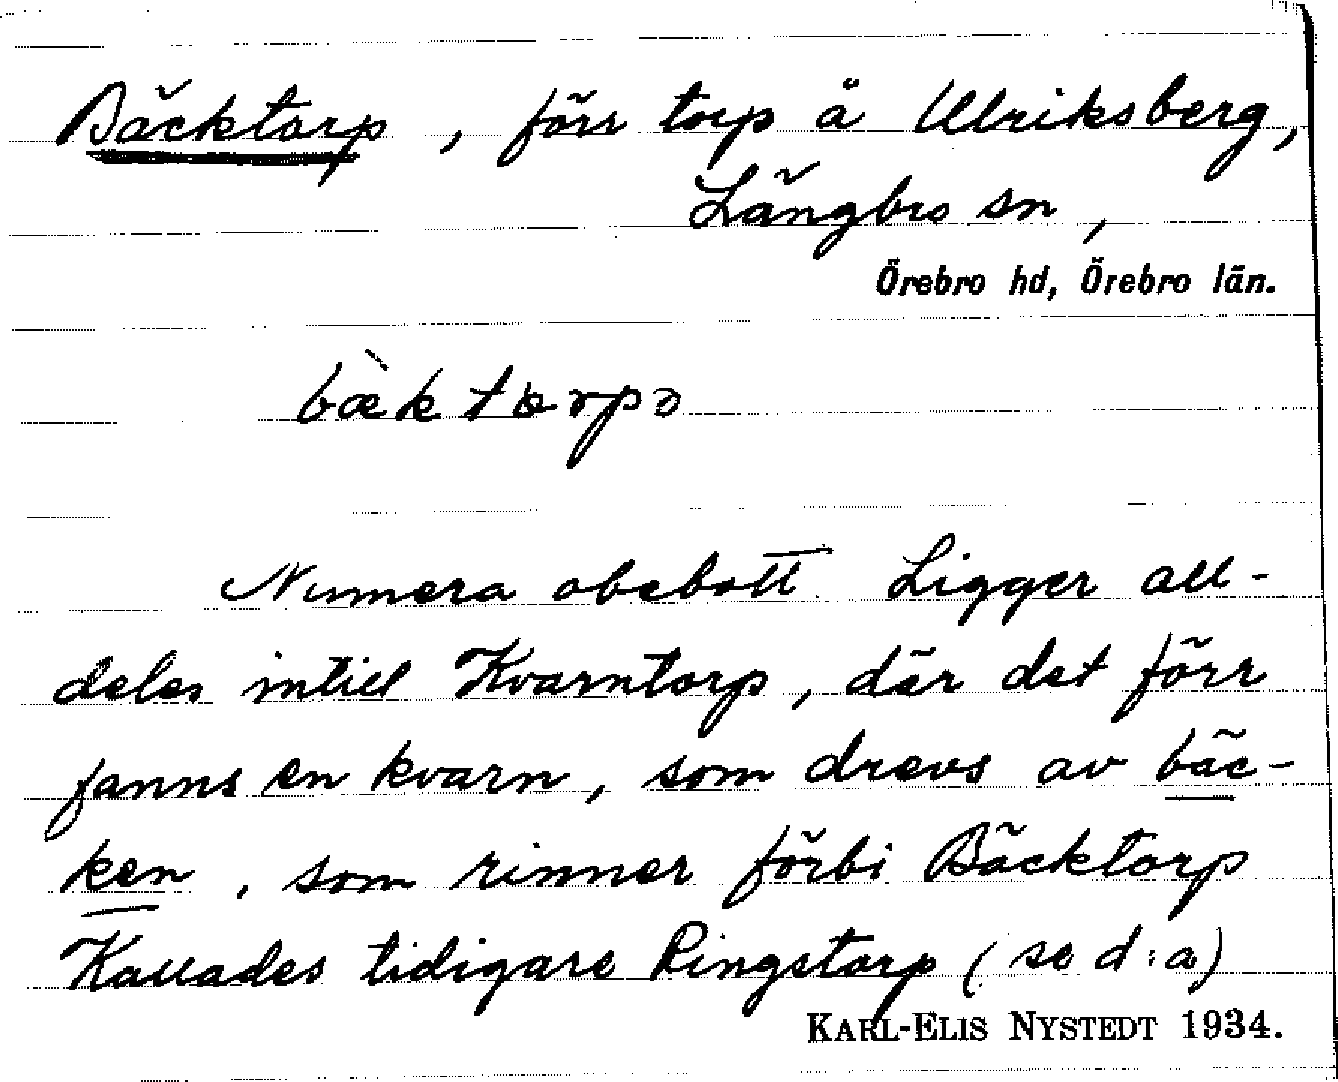 Bäcktorp, förr torp å Ulriksberg,
Längbro sn,
Örebro hd, Örebro län.
bæ̀ktorpə
Numera obebott. Ligger all-
deles intill Kvarntorp, där det förr
fanns en kvarn, som drevs av bäc-
ken, som rinner förbi Bäcktorp
Kallades tidigare Ringstorp (se d:a)
KARL-ELIS NYSTEDT 1934.